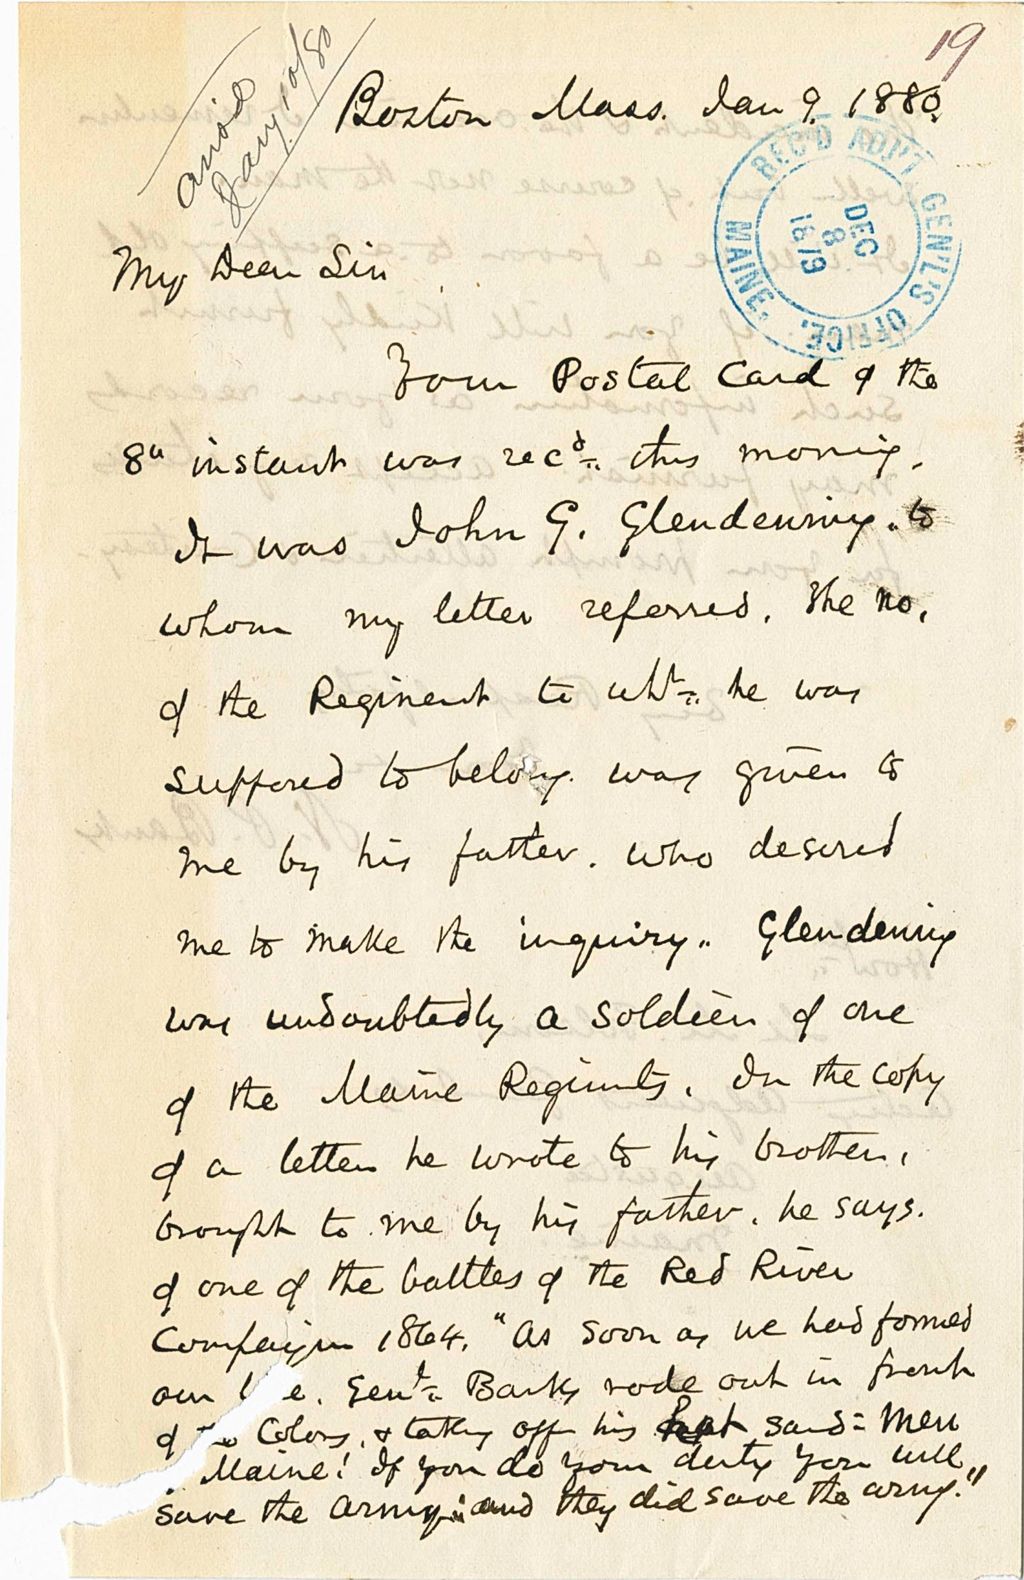 19
ansd
Jany 10/80
Boston Mass. Jan 9. 1880.
REC'D ADJ'T GEN'L'S OFFICE, MAINE.
DEC
8
1879
My Dear Sir
Your Postal Card of the
8th instant was rec'd this morning.
It was John G. Glendening to
whom my letter referred. The no.
of the Regiment to wh't he was
supposed to belong was given to
me by his father. who desired
me to make the inquiry. Glendening
was undoubtedly a soldier of one
of the Maine Regiments. In the copy
of a letter he wrote to his brother,
brought to me by his father, he says.
of one of the battles of the Red River
Campaign 1864. "As soon as we had formed
our l e. Gen'l Banks rode out in front
of Colors, & taking off his hat said = Men
Maine! If you do your duty you will
save the army: and they did save the army."